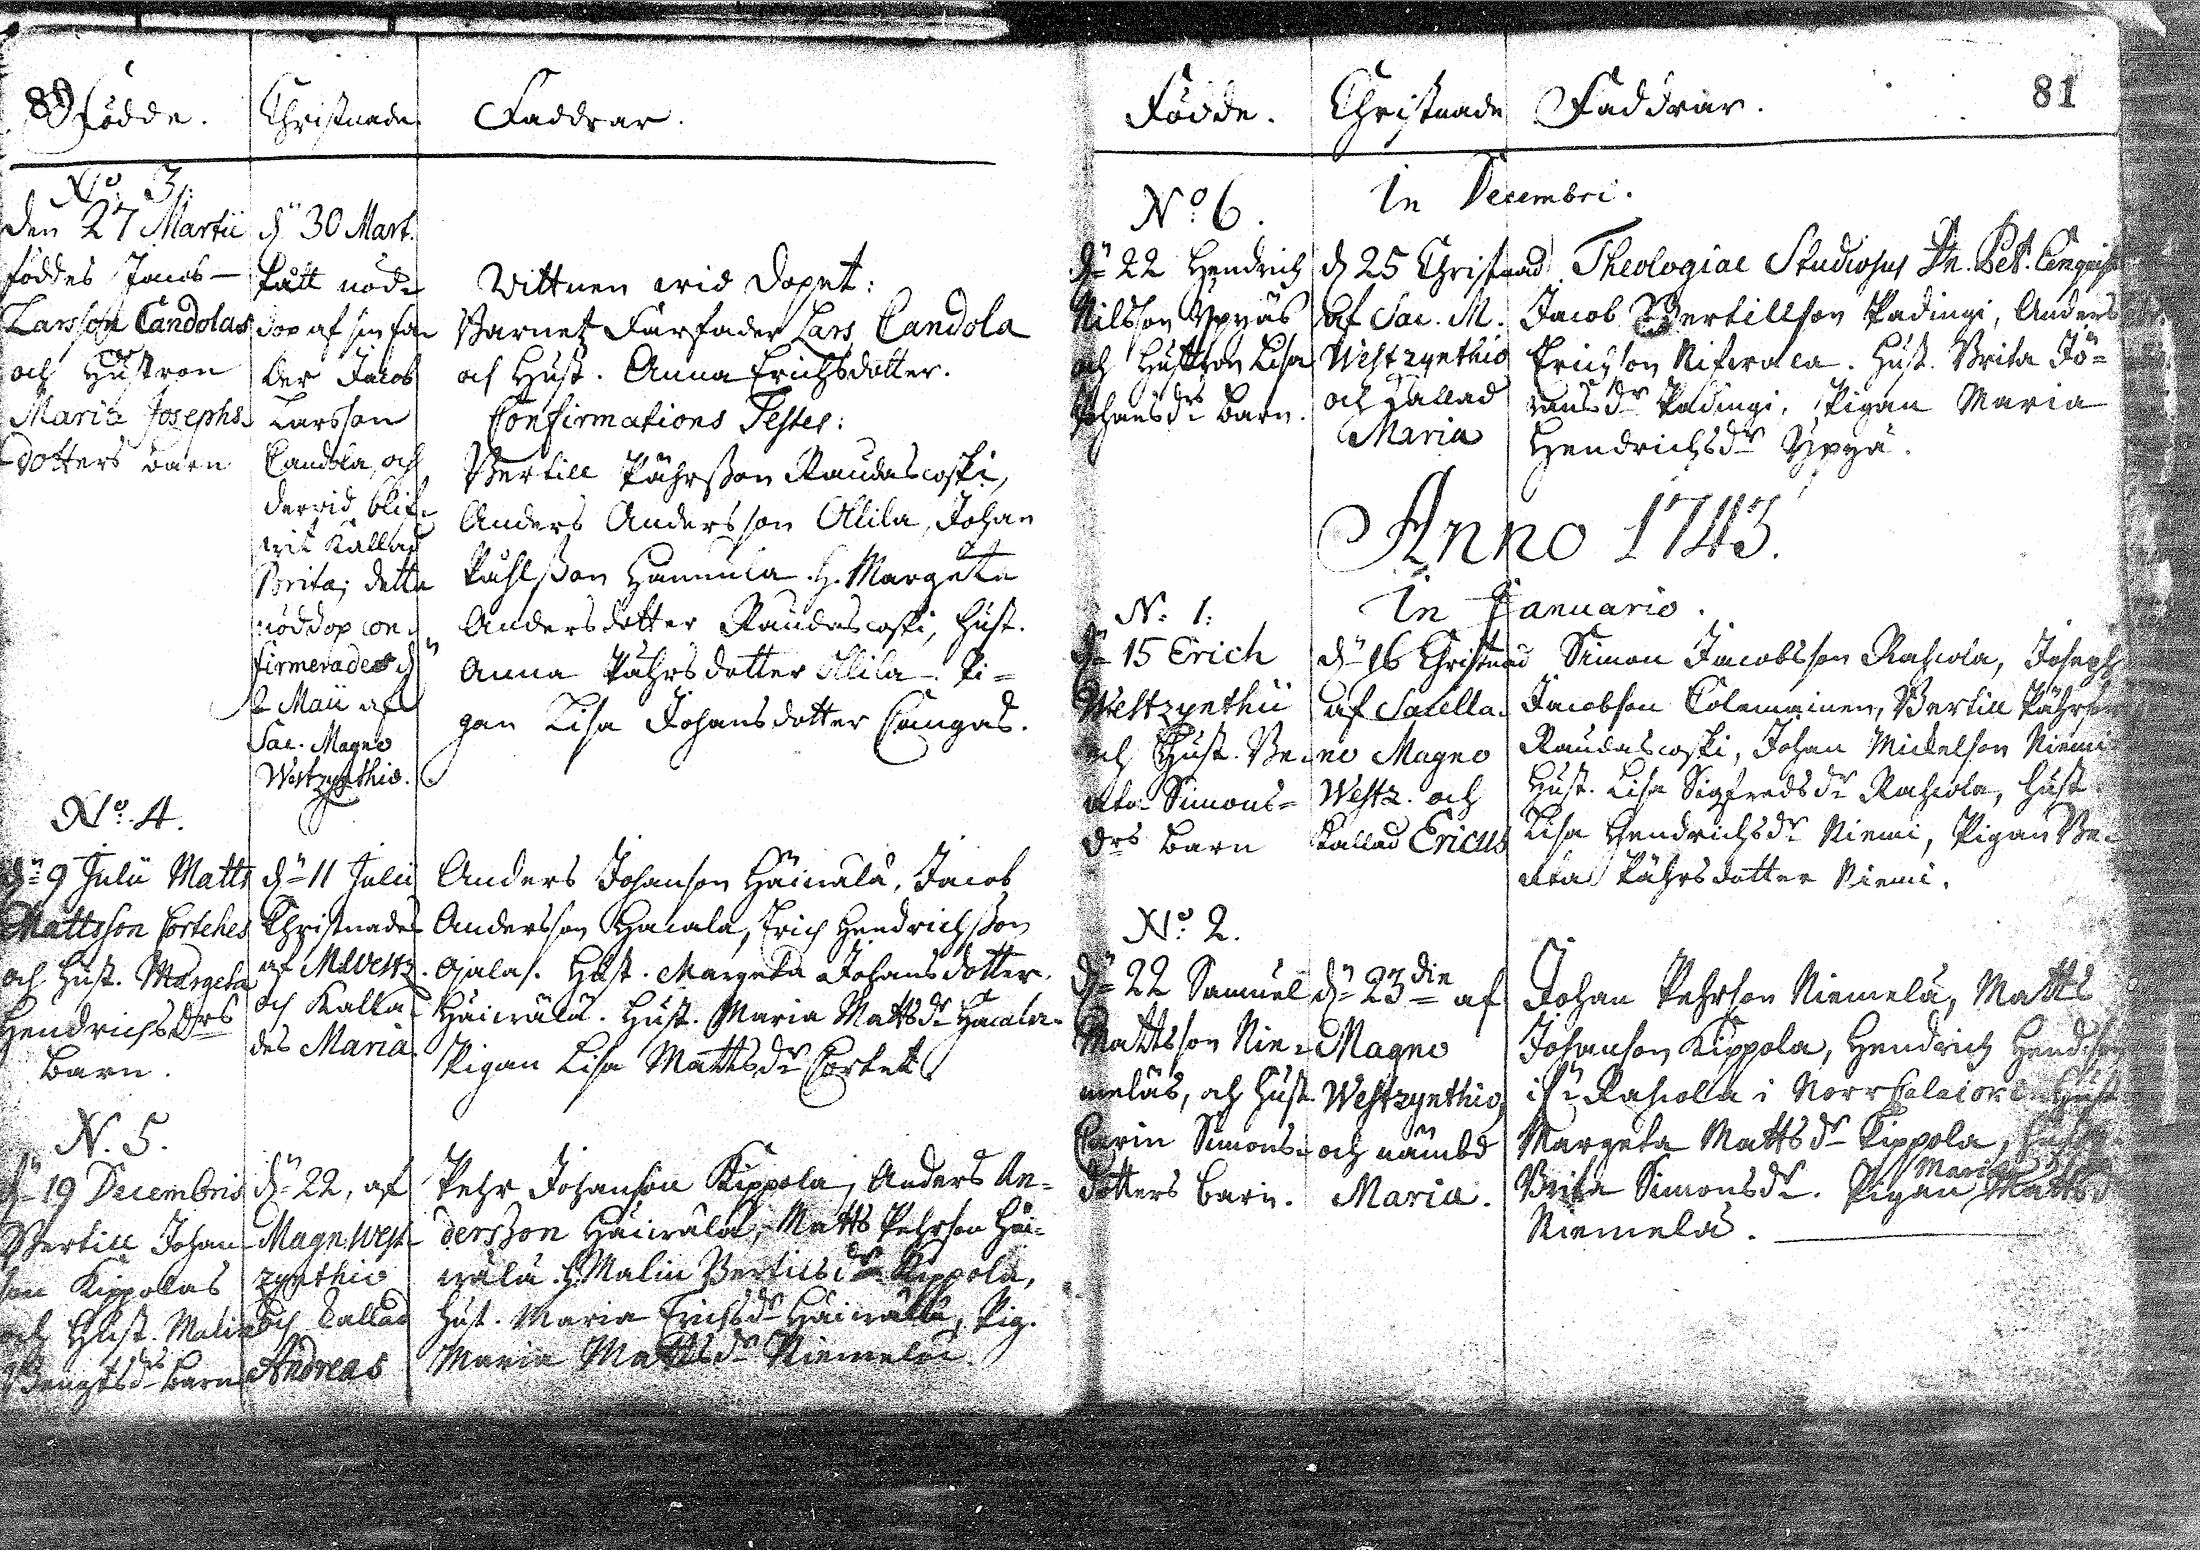 80
Födde. Christnade Faddrar.
No. 3.
den 27 Martii
föddes Jacob
Larsson Candolas
och Hustron
Maria Josephs
dotters barn
dn 30 Mart.
fått nöd-
dop af sin fa-
der Jacob
Larsson
Candola, och
dervid blif-
wit kallad
Brita; detta
nöddop con-
firmerades dn
2 Maii af
Sac. Magno
Westzynthio.
Vittnen wid dopet:
Barnets Farfader Lars Candola
och Hust. Anna Erichsdotter.
Confirmations Testes:
Bertill Påhrsson Raudascoski,
Anders Andersson Alila, Johan
Påhlsson Hannula. H. Margeta
Andersdotter Raudascoski, Hust.
Anna Påhrsdotter Alila. Pi=
gan Lisa Johansdotter Cangas.
No. 4.
dn 9 Julii Matts
Mattsson Cortehes
och Hust. Margeta
Hendrichsdrs
barn.
dn 11 Julii
Christnades
af M Westz.
och Kalla-
des Maria.
Anders Johanson Häiwälä, Jacob
Andersson Hacala, Erich Hendrichsson
Ojala. Hust. Margeta Johansdotter
Häiwälä. Hust. Maria Mattsdr Hacala.
Pigan Lisa Mattsdr Cortet.
N. 5.
dn 19 Decembris
Bertill Johan-
son Kippolas
och Hust. Malin
Bengtsdrs barn
dn 22, af
Magn. West-
zynthio
och kallad
Andreas
Pehr Johanson Kippola, Anders An=
dersson Häiwälä, Matts Pehrson Häi-
wälä. H. Malin Bertilsdr Kippola,
Hust. Maria Erichsdr Häiwälä, Pig.
Maria Mattsdr Niemelä.
81
Födde. Christnade Faddrar.
In Decembri.
No 6.
dn 22 Hendrich
Nilsson Ypyäs
och Hustron Lisa
Johansdrs barn.
dn 25 Christnad
af Sac. M.
Westzynthio
och Kallad
Maria
Theologiae Studiosus Dn. Pet.
Jacob Bertillson Padingi, Anders
Erichson Niferala. Hust. Brita Jö=
ransdr Padingi, Pigan Maria
Hendrichsdr Ypyä.
Anno 1743.
In Januario.
N. 1.
dn 15 Erich
Westzynthii
och Hust. Be-
ata Simons=
drs barn
dn 16 Christnad
af Sacella-
no Magno
Westz. och
Kallad Ericus
Simon Jacobsson Rahiola, Joseph
Jacobson Colemainen, Bertill Påhrson
Raudascoski, Johan Mickelson Niemi
Hust. Lisa Sigfredsdr Rahiola, Hust.
Lisa Hendrichsdr Niemi, Pigan Be-
ata Påhrsdotter Niemi.
No. 2.
dn 22 Samuel
Mattsson Nie-
meläs, och Hust.
Carin Simons-
dotters barn.
dn 23 die af
Magno
Westzynthio,
och nämbd
Maria.
Johan Pehrson Niemelä, Matts
Johanson Kippola, Hendrich
Rahiola i Norr Hust
Margeta Mattsdr Kippola,
Brita Simonsdr. Pigan Maria Mattsdr
Niemelä.